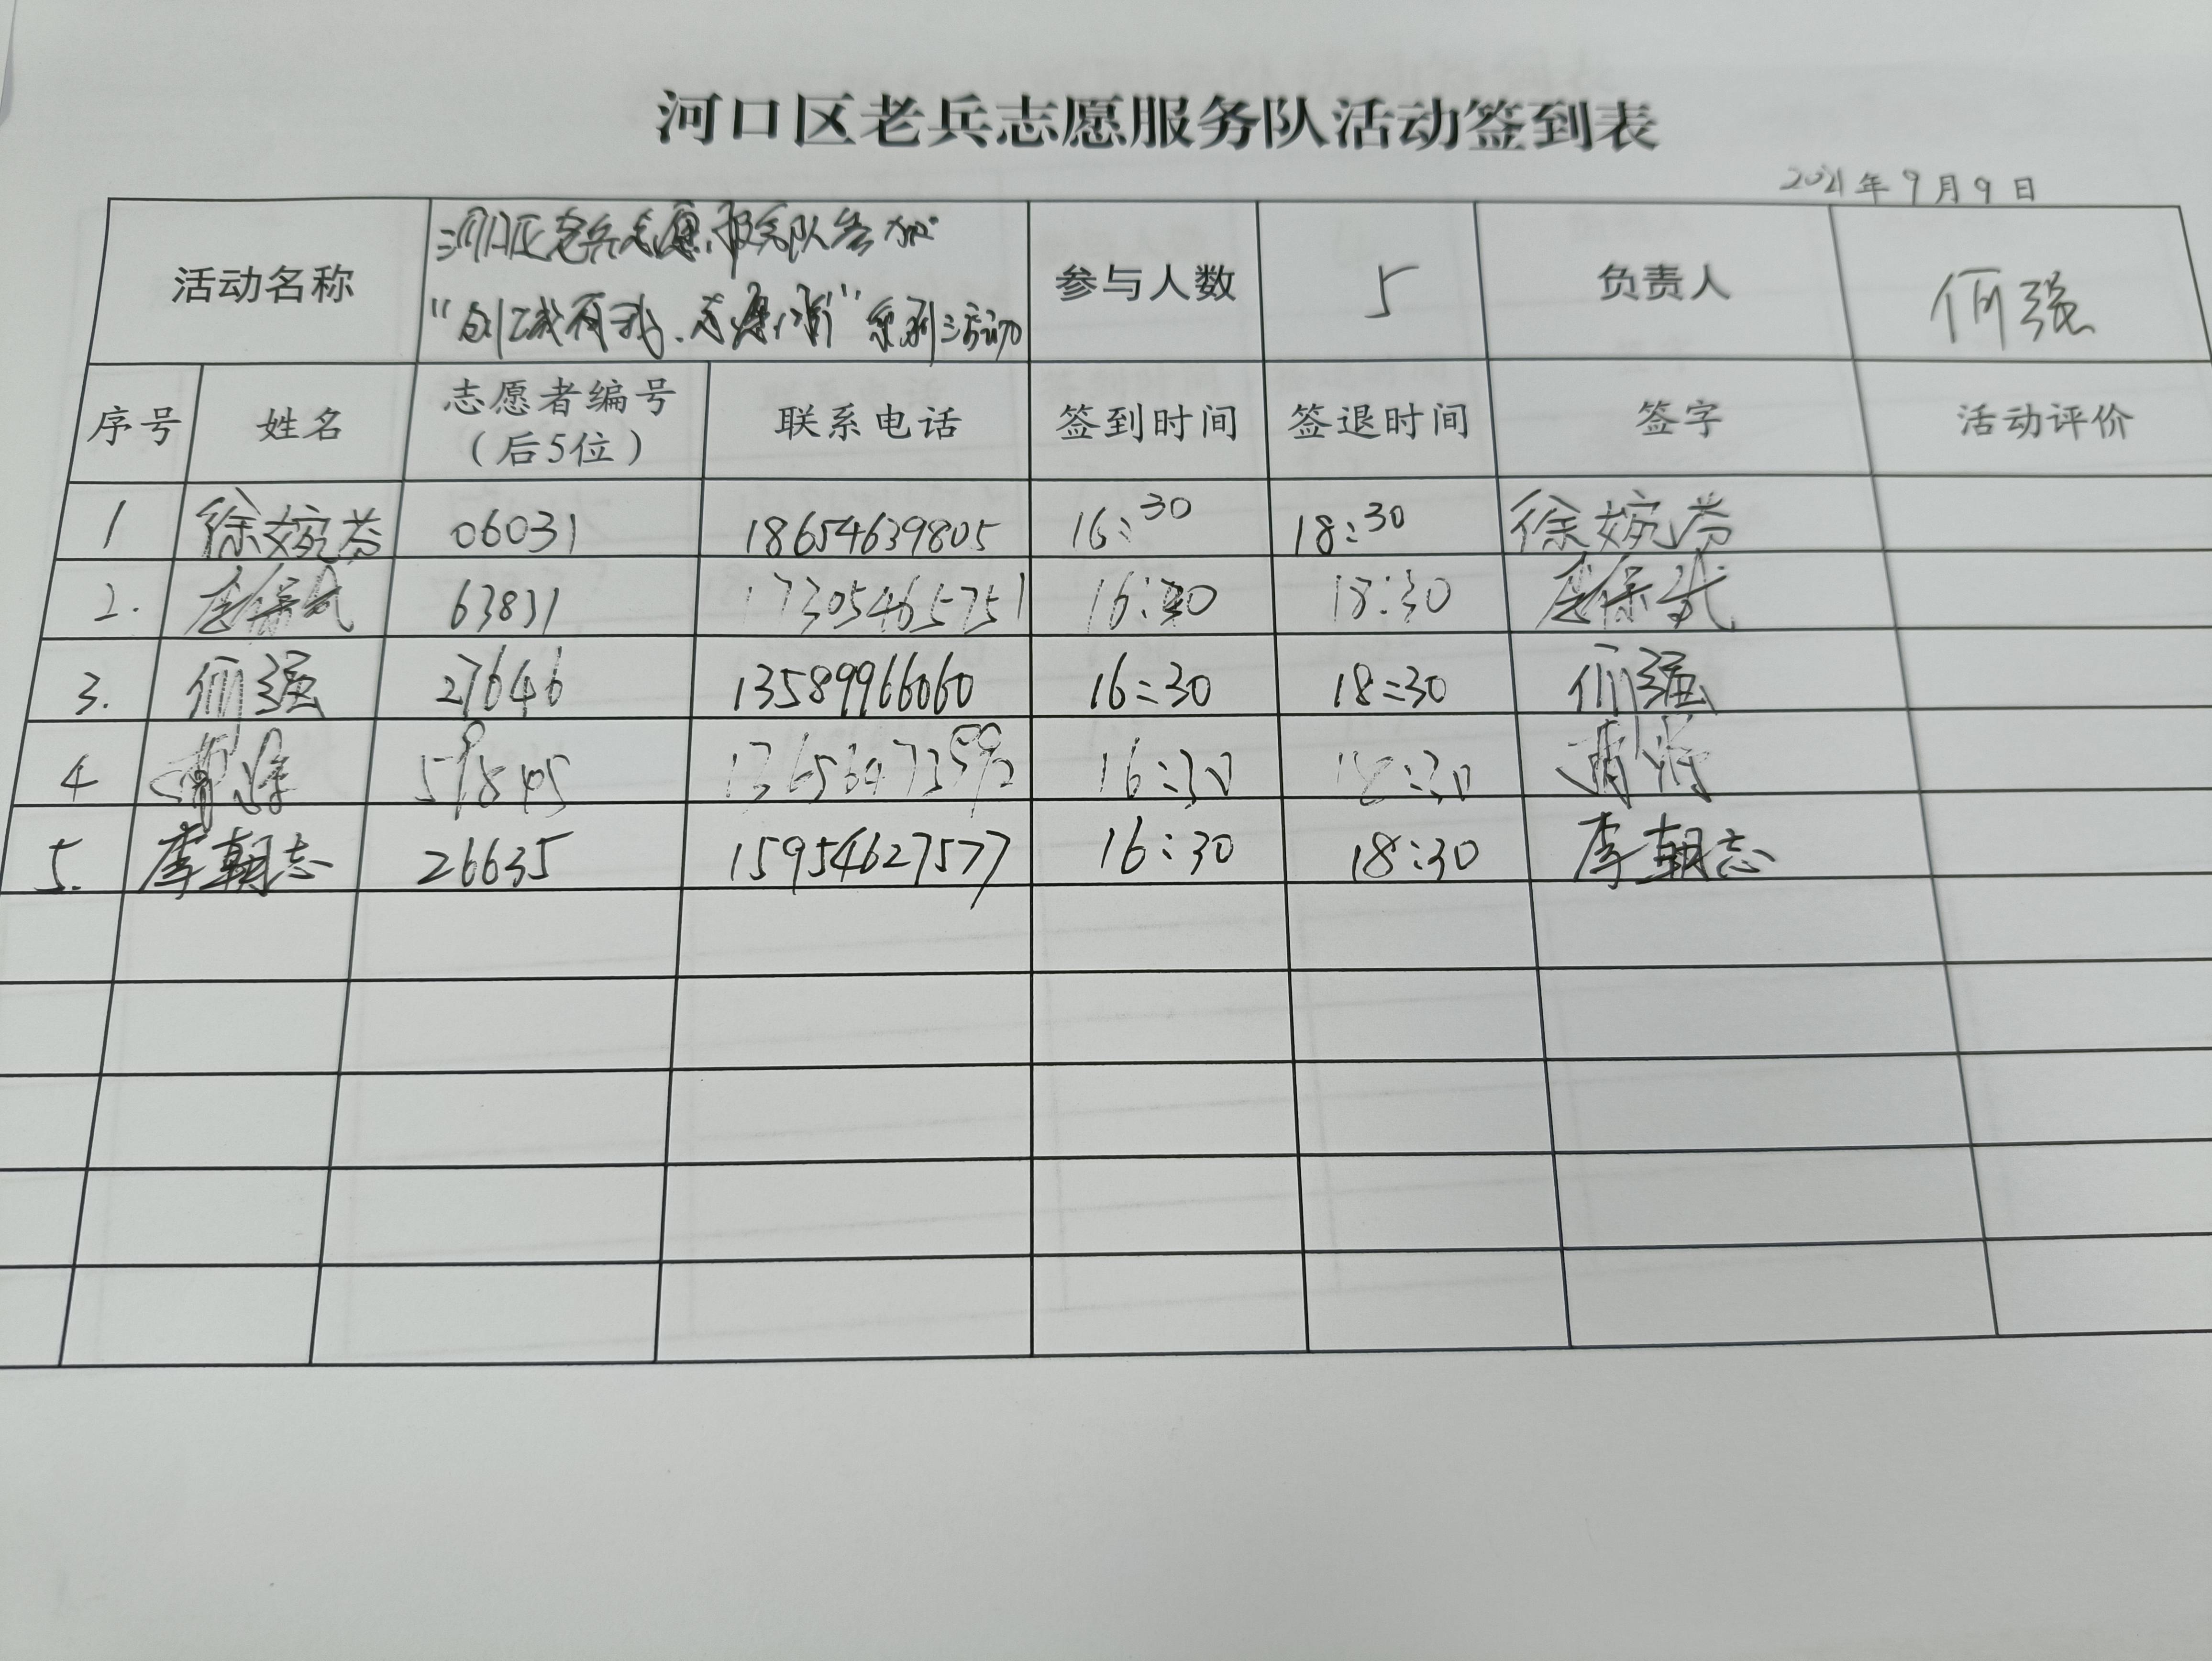 河口区老兵志愿服务队活动签到表
2021年9月9日
活动名称
河口区老兵志愿服务队参加
"创城有我、志愿同行"系列活动
参与人数 5 负责人 何强
序号 姓名 志愿者编号 联系电话 签到时间 签退时间 签字 活动评价
(后5位)
1 徐婉芬 06031 18654639805 16:30 18:30 徐婉芬
2. 63831 17305465751 16:30 18:30
3. 何强 27646 13589966060 16:30 18:30 何强
4 59845 16:30 18:30
5. 李朝志 26635 15954627577 16:30 18:30 李朝志